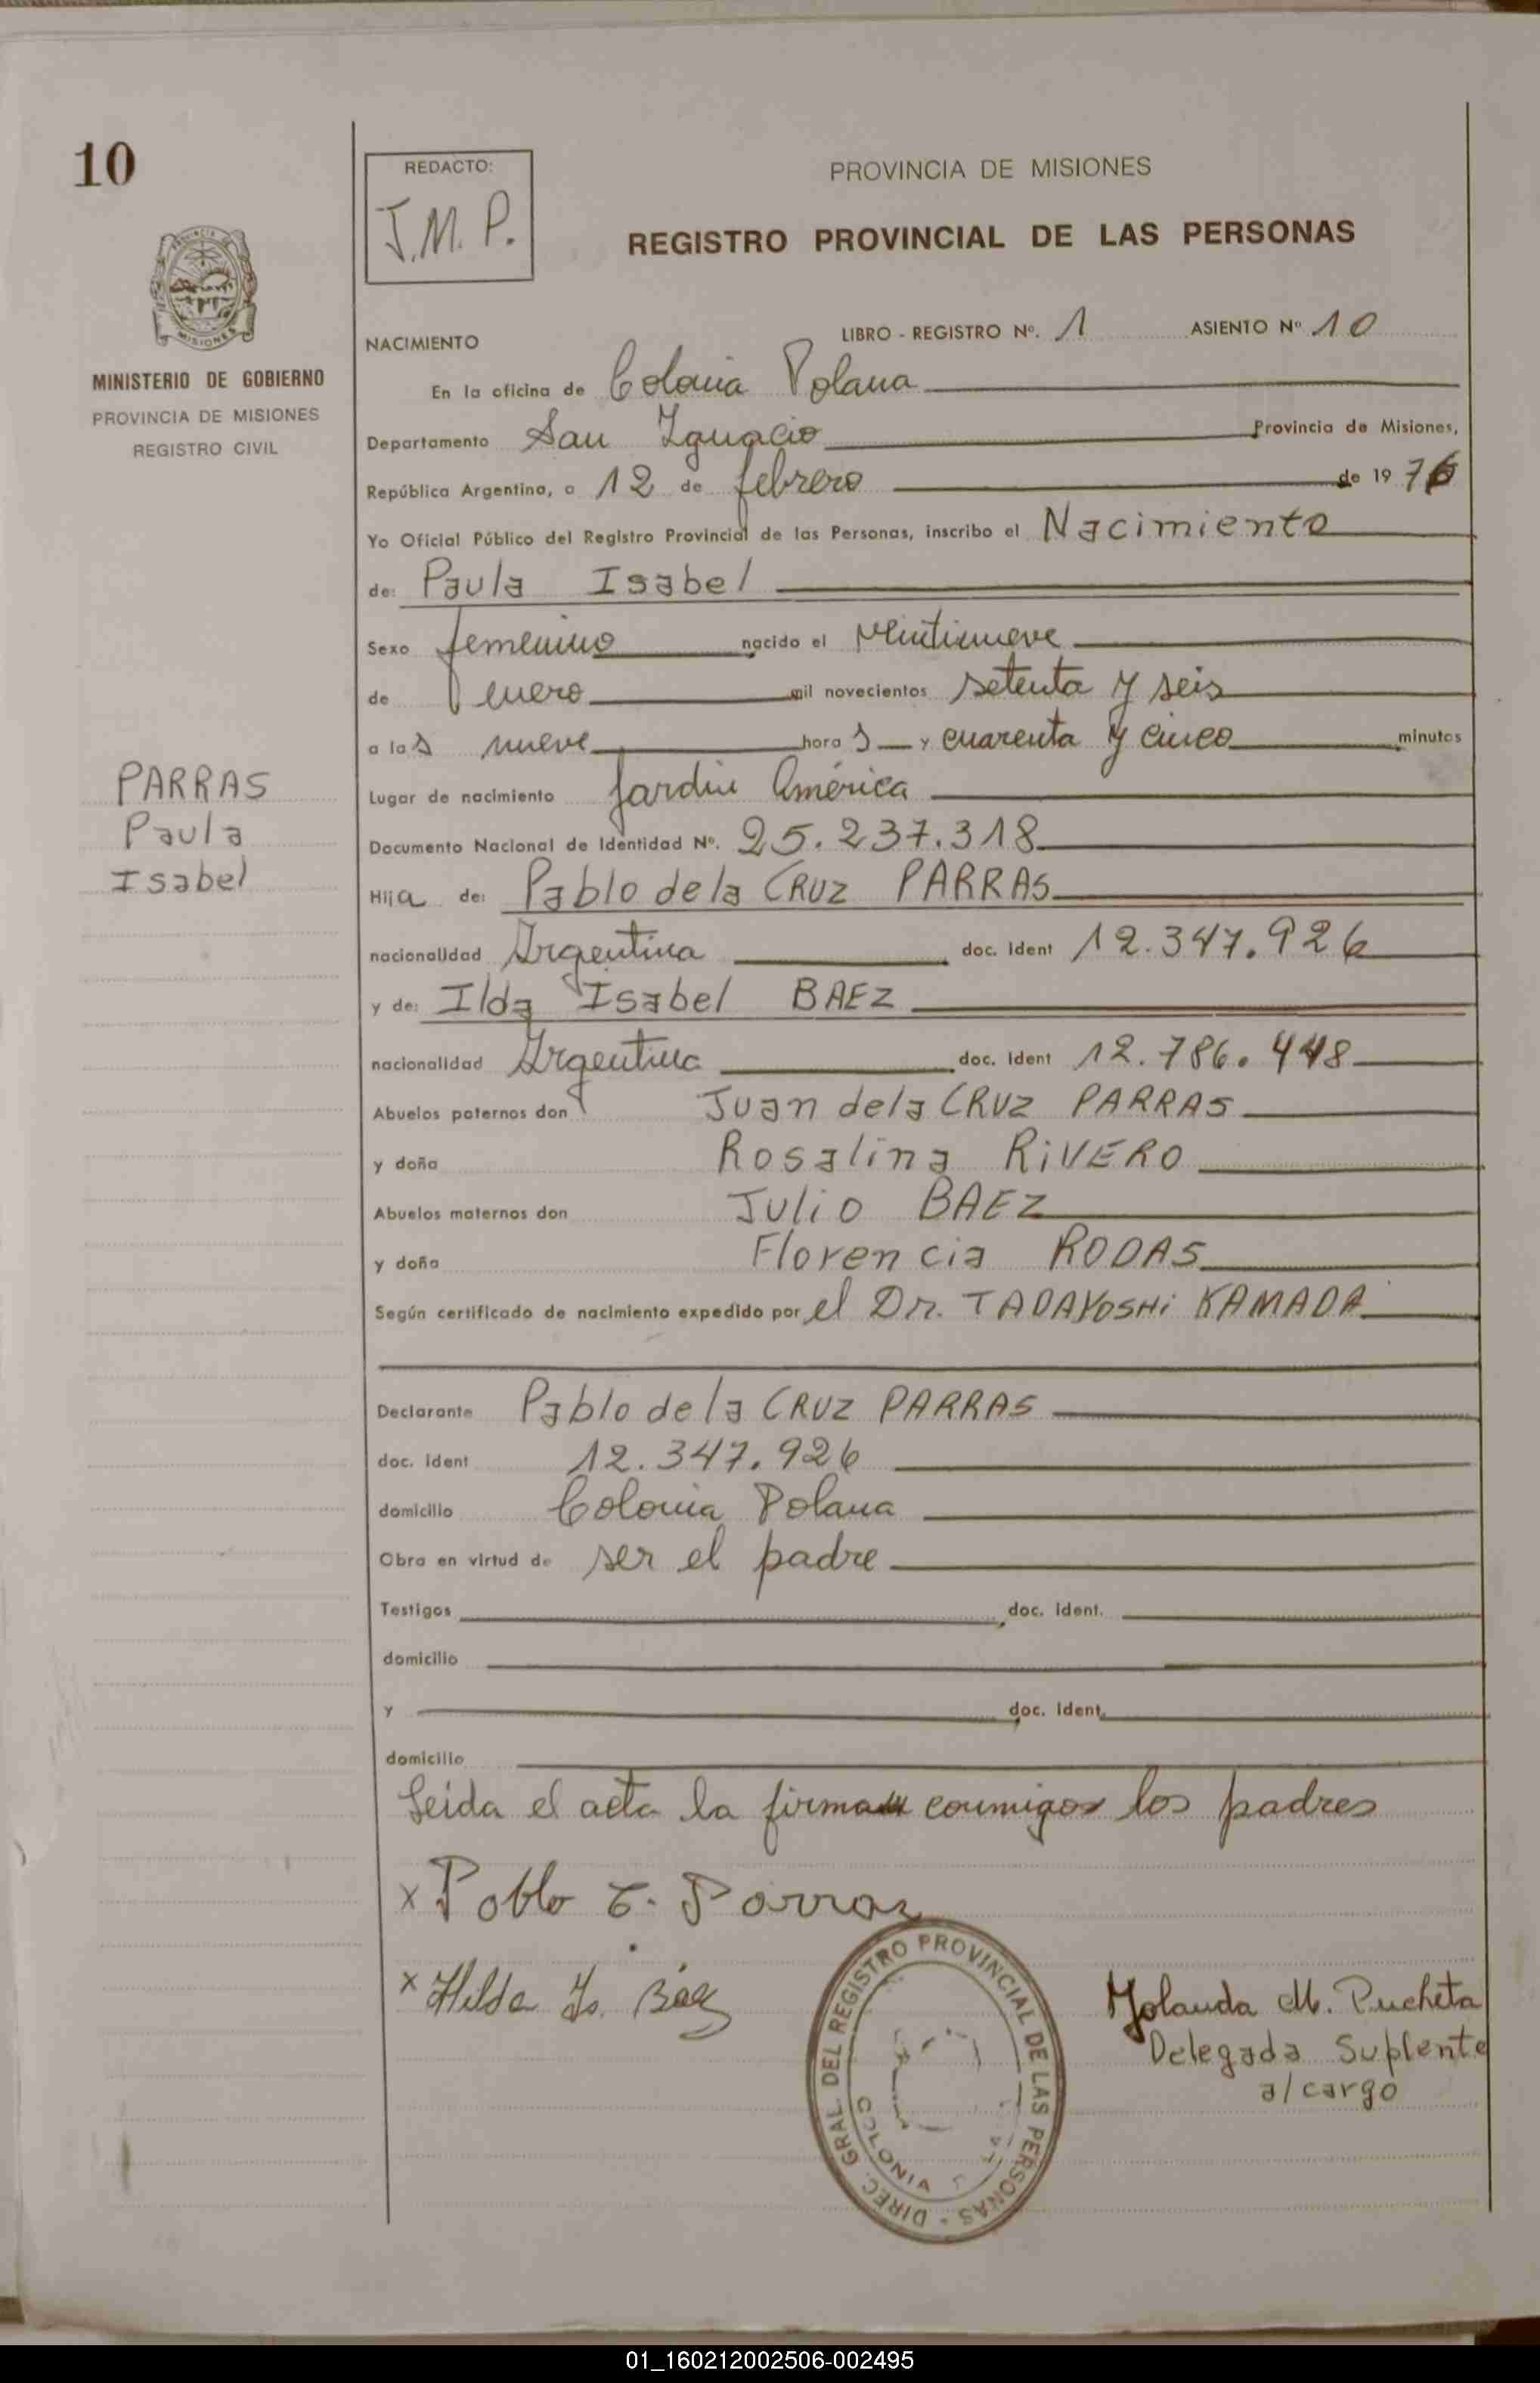 10
REDACTO:
J.M.P.
PROVINCIA DE MISIONES
REGISTRO PROVINCIAL DE LAS PERSONAS
PROVINCIA DE
MISIONES
MINISTERIO DE GOBIERNO
PROVINCIA DE MISIONES
REGISTRO CIVIL
NACIMIENTO LIBRO - REGISTRO Nº. 1 ASIENTO Nº 10
En la oficina de Colonia Polana
Departamento San Ignacio Provincia de Misiones,
República Argentina, a 12 de febrero de 1976
Yo Oficial Público del Registro Provincial de las Personas, inscribo el Nacimiento
de: Paula Isabel
Sexo femenino nacido el veintinueve
de enero mil novecientos setenta y seis
a las nueve horas y cuarenta y cinco minutos
PARRAS
Paula
Isabel
Lugar de nacimiento Jardín América
Documento Nacional de Identidad Nº. 25.237.318
Hija de: Pablo de la CRUZ PARRAS
nacionalidad Argentina doc. ident 12.347.926
y de: Ilda Isabel BAEZ
nacionalidad Argentina doc. ident 12.786.448
Abuelos paternos don Juan dela CRUZ PARRAS
y doña Rosalina RiVERO
Abuelos maternos don Julio BAEZ
y doña Florencia RODAS
Según certificado de nacimiento expedido por el Dr. TADAYOSHi KAMADA
Declarante Pablo de la CRUZ PARRAS
doc. ident 12.347.926
domicilio Colonia Polana
Obra en virtud de ser el padre
Testigos doc. ident.
domicilio
y doc. ident.
domicilio
Leida el acta la firman conmigo los padres
x Pablo C. Parras
x Hilda Is. Báez
DIREC. GRAL. DEL REGISTRO PROVINCIAL DE LAS PERSONAS -
COLONIA
Yolanda M. Pucheta
Delegada Suplente
a/cargo
01_160212002506-002495